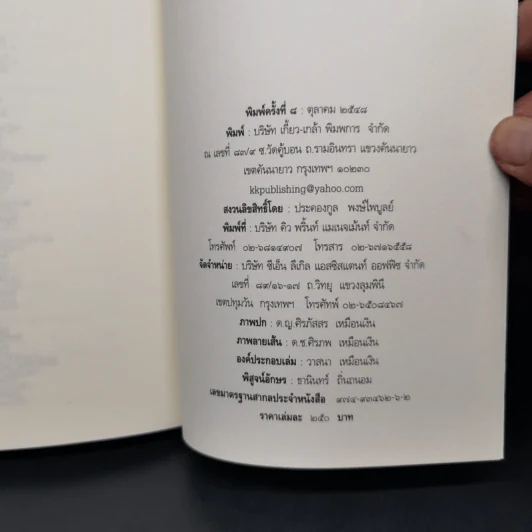 พิมพ์ครั้งที่ ๘ : ตุลาคม ๒๕๔๘
พิมพ์ : บริษัท เกี้ยว-เกล้า พิมพการ จำกัด
ณ เลขที่ ๘๓/๙ ซ.วัดคู้บอน ถ.รามอินทรา แขวงคันนายาว
เขตคันนายาว กรุงเทพฯ ๑๐๒๓๐
kkpublishing@yahoo.com
สงวนลิขสิทธิ์โดย : ประคองกูล พงษ์ไพบูลย์
พิมพ์ที่ : บริษัท คิว พริ้นท์ แมเนจเม้นท์ จำกัด
โทรศัพท์ ๐๒-๖๘๑๔๙๐๗ โทรสาร ๐๒-๖๗๑๖๕๕๘
จัดจำหน่าย : บริษัท ซีเอ็น ลีเกิล แอสซิสแตนท์ ออฟฟิซ จำกัด
เลขที่ ๘๙/๑๖-๑๗ ถ.วิทยุ แขวงลุมพินี
เขตปทุมวัน กรุงเทพฯ โทรศัพท์ ๐๒-๖๕๐๘๔๖๗
ภาพปก : ด.ญ.ศิรภัสสร เหมือนเงิน
ภาพลายเส้น : ด.ช.ศิรภพ เหมือนเงิน
องค์ประกอบเล่ม : วาสนา เหมือนเงิน
พิสูจน์อักษร : ธานินทร์ ถิ่นถนอม
เลขมาตรฐานสากลประจำหนังสือ ๙๗๔-๙๓๔๖๒-๖-๒
ราคาเล่มละ ๒๕๐ บาท